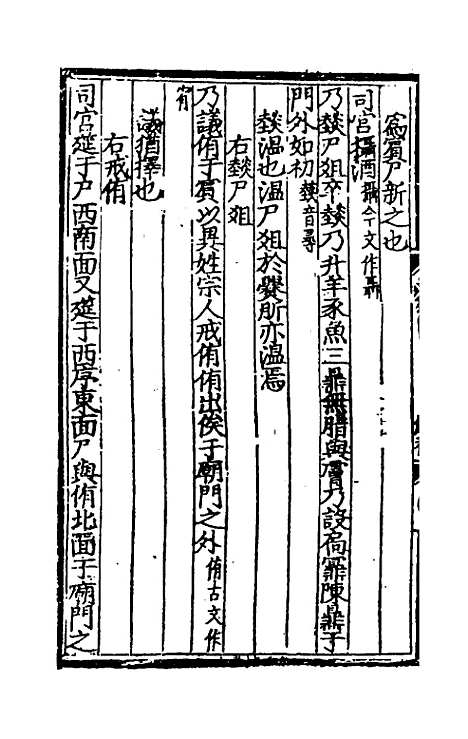 為賓尸新之也
司宮攝酒攝今文作聶
乃燅尸俎卒燅乃升羊豕魚三鼎無腊與膚乃設扃鼏陳鼎于
門外如初燅音尋
燅温也温尸俎於爨所亦温焉
右燅尸俎
乃議侑于賓以異姓宗人戒侑侑出俟于廟門之外侑古文作
宥
議猶擇也
右戒侑
司宮筵于戶西南面又筵于西序東面尸與侑北面于廟門之